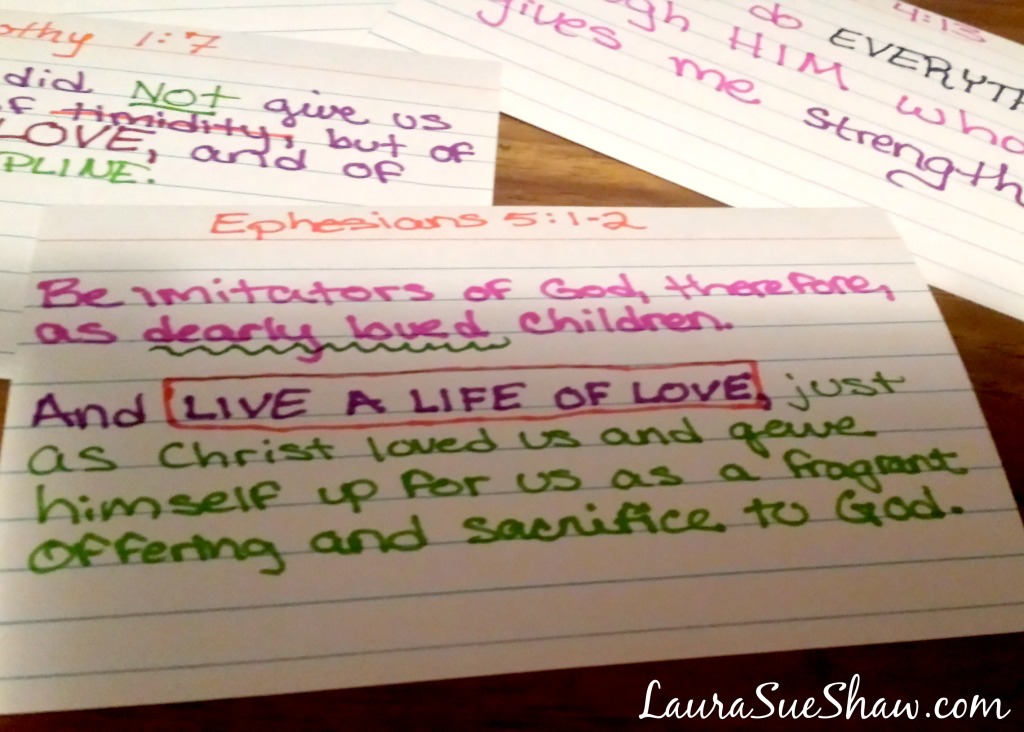 othy 1:7
did NOT give us
of timidity, but of
LOVE, and of
PLINE.
do EVERYTH
4:13
ugh HIM who
gives me strength
Ephesians 5:1-2
Be imitators of God, therefore,
as dearly loved children.
And LIVE A LIFE OF LOVE, just
as Christ loved us and gave
himself up for us as a fragrant
offering and sacrifice to God.
LauraSueShaw.com